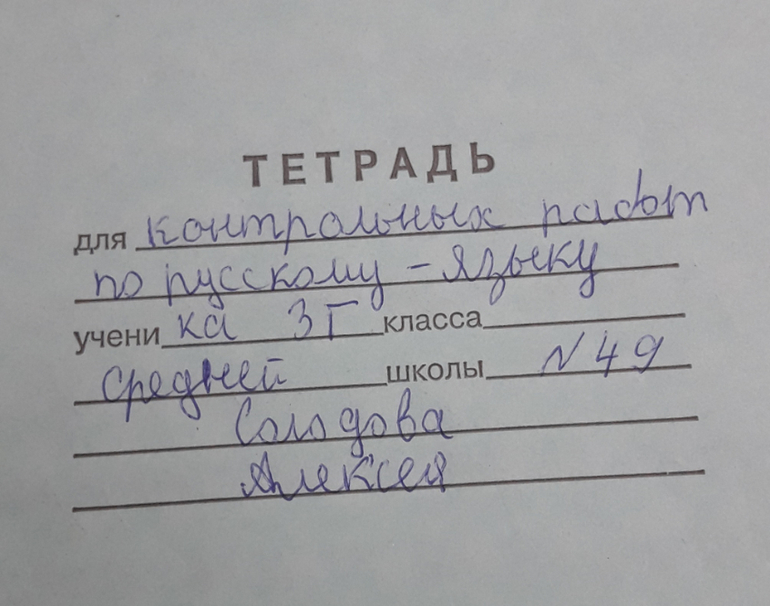 ТЕТРАДЬ
для контрольных работ
по русскому - языку
ученика 3Г класса
средней школы N 49
Солодова
Алексея